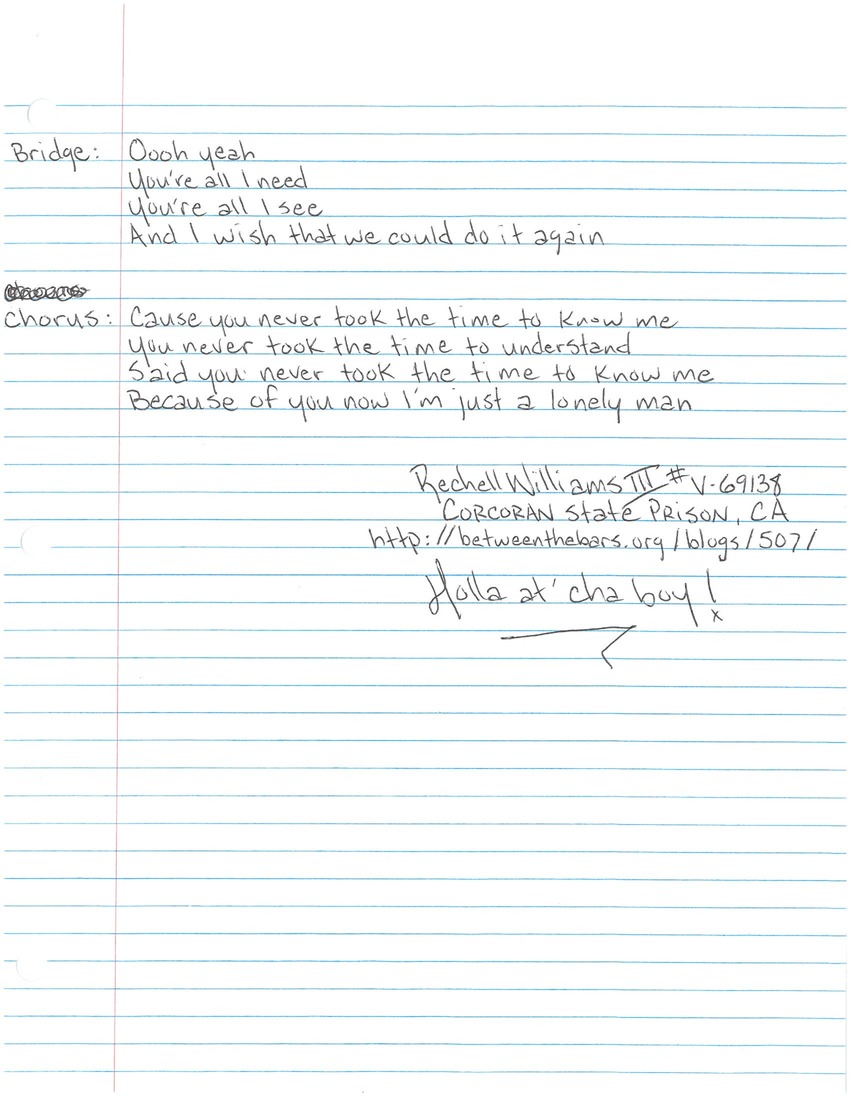 Bridge: Oooh yeah
You're all I need
You're all I see
And I wish that we could do it again
Chorus: Cause you never took the time to know me
You never took the time to understand
Said you never took the time to know me
Because of you now I'm just a lonely man
Rechell Williams III #V-69138
CORCORAN State PRISON, CA
http://betweenthebars.org/blogs/507/
Holla at' cha boy!
x